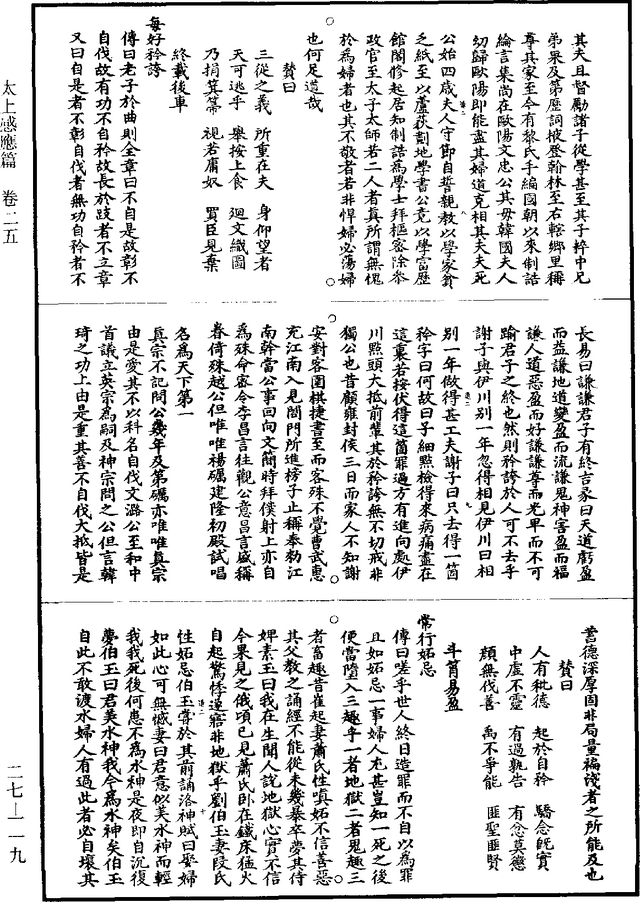 太上感應篇 卷二五
二七—一一九
其夫且督勵諸子從學甚至其子粹中兄
弟果及第歷詞掖登翰林至右轄鄉里稱
尊其家至今有黎氏手編國朝以來制誥
綸言集尚在歐陽文忠公其毋韓國夫人
㓜歸歐陽即能盡其婦道克相其夫夫死
公始四歲夫人守節自誓親教以學家貧
乏紙至以蘆荻劃地學書公竟以學富歷
館閣修起居知制誥為學士拜樞密除叅
政官至太子太師若二人者真所謂無愧
於為婦者也其不敬者若非悍婦必蕩婦
也何足道哉
贊曰
三從之義 所重在夫 身仰望者
天可逃乎 舉按上食 迴文織圖
乃捐箕箒 視若庸奴 買臣見棄
終載後車
每好矜誇
傳曰老子於曲則全章曰不自是故彰不
自伐故有功不自矜故長於跂者不立章
又曰自是者不彰自伐者無功自矜者不
長易曰謙謙君子有終吉彖曰天道虧盈
而益謙地道變盈而流謙鬼神害盈而福
謙人道惡盈而好謙謙尊而光卑而不可
踰君子之終也然則矜誇於人可不去乎
謝子與伊川别一年忽得相見伊川曰相
别一年做得甚工夫謝子曰只去得一箇
矜字曰何故曰子細點檢得來病痛盡在
這裏若按伏得這箇罪過方有進向處伊
川點頭大抵前輩其於矜誇無不切戒非
獨公也昔顧雍封侯三日而家人不知謝
安對客圍棋捷書至而客殊不覺曹武惠
克江南入見閤門所進榜子止稱奉勑江
南幹當公事回向文簡時拜僕射上亦自
為殊命密令李昌言往觀公意昌言盛稱
眷倚殊越公但唯唯楊礪建隆初殿試唱
名為天下第一
真宗不記問公幾年及第礪亦唯唯真宗
由是愛其不以科名自伐文潞公至和中
首議立英宗為嗣及神宗問之公但言韓
琦之功上由是重其善不自伐大抵皆是
蓄德深厚固非局量褊淺者之所能及也
贊曰
人有秕德 起於自矜 驕念旣實
中虛不靈 有過孰告 有愆莫懲
顔無伐善 禹不爭能 匪聖匪賢
斗筲易盈
常行妬忌
傳曰嗟乎世人終日造罪而不自以為罪
且如妬忌一事婦人尤甚豈知一死之後
便當墮入三趣乎一者地獄二者鬼趣三
者畜趣昔崔起妻蕭氏性嗔妬不信善惡
其父教之誦經不能從未幾暴卒夢其侍
婢素玉曰我在生聞人說地獄心實不信
今果見之俄頃已見蕭氏卧在鐵床猛火
自起驚悸遽寤非地獄乎劉伯玉妻段氏
性妬忌伯玉嘗於其前誦洛神賦曰娶婦
如此心可無憾妻曰君意以美水神而輕
我我死後何患不為水神是夜即自沉後
夢伯玉曰君美水神我今為水神矣伯玉
自此不敢渡水婦人有過此者必自壞其